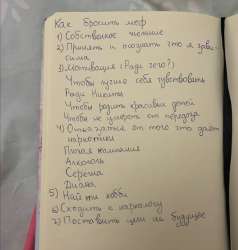 Как бросить меф
1) Собственное желание
2) Принять и осознать что я зави-
сима
3) Мотивация (Ради чего?)
Чтобы лучше себя чувствовать
Ради Никиты
Чтобы родить красивых детей
Чтобы не умереть от передоза
4) Отказаться от того что даёт
наркотики
Плохая компания
Алкоголь
Серёжа
Диана
5) Найти хобби
6) Сходить к наркологу
7) Поставить цели на будущее